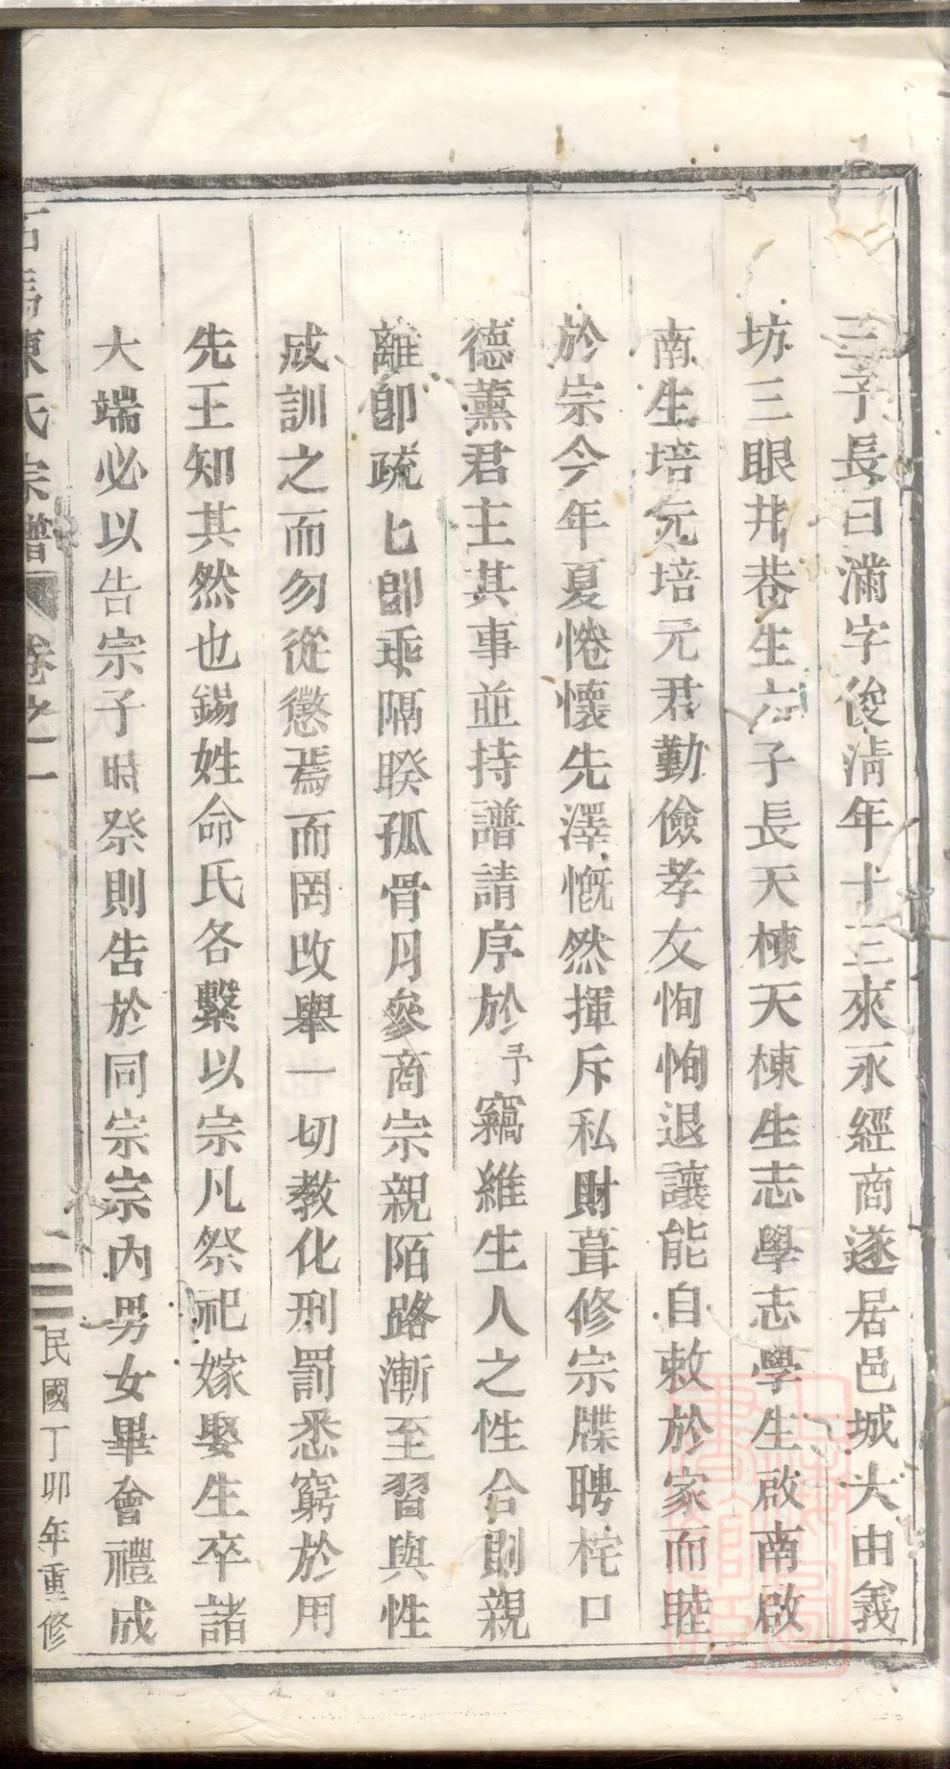 三子長曰滿字俊淸年十三來永經商遂居邑城大由義
坊三眼井巷生六子長天棟天棟生志學志學生啟南啟
南生培元培元君勤儉孝友恂恂退讓能自敕於家而睦
於宗今年夏惓懷先澤慨然揮斥私財葺修宗牒聘梡口
德薰君主其事並持譜請序於予竊維生人之性合則親
離卽疏匕卽乖隔暌孤骨月參商宗親陌路漸至習與性
成訓之而勿從懲焉而罔改舉一切教化刑罰悉窮於用
先王知其然也錫姓命氏各繫以宗凡祭祀嫁娶生卒諸
大端必以告宗子時祭則告於同宗宗內男女畢會禮成
石馬陳氏宗譜 卷之一 二 民國丁卯年重修